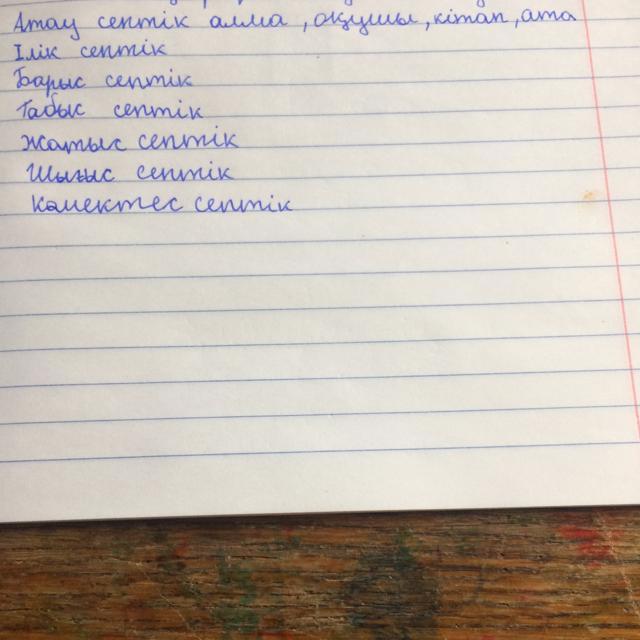 Атау септік алма, оқушы, кітап, ата
Ілік септік
Барыс септік
Табыс септік
Жатыс септік
Шығыс септік
Көмектес септік